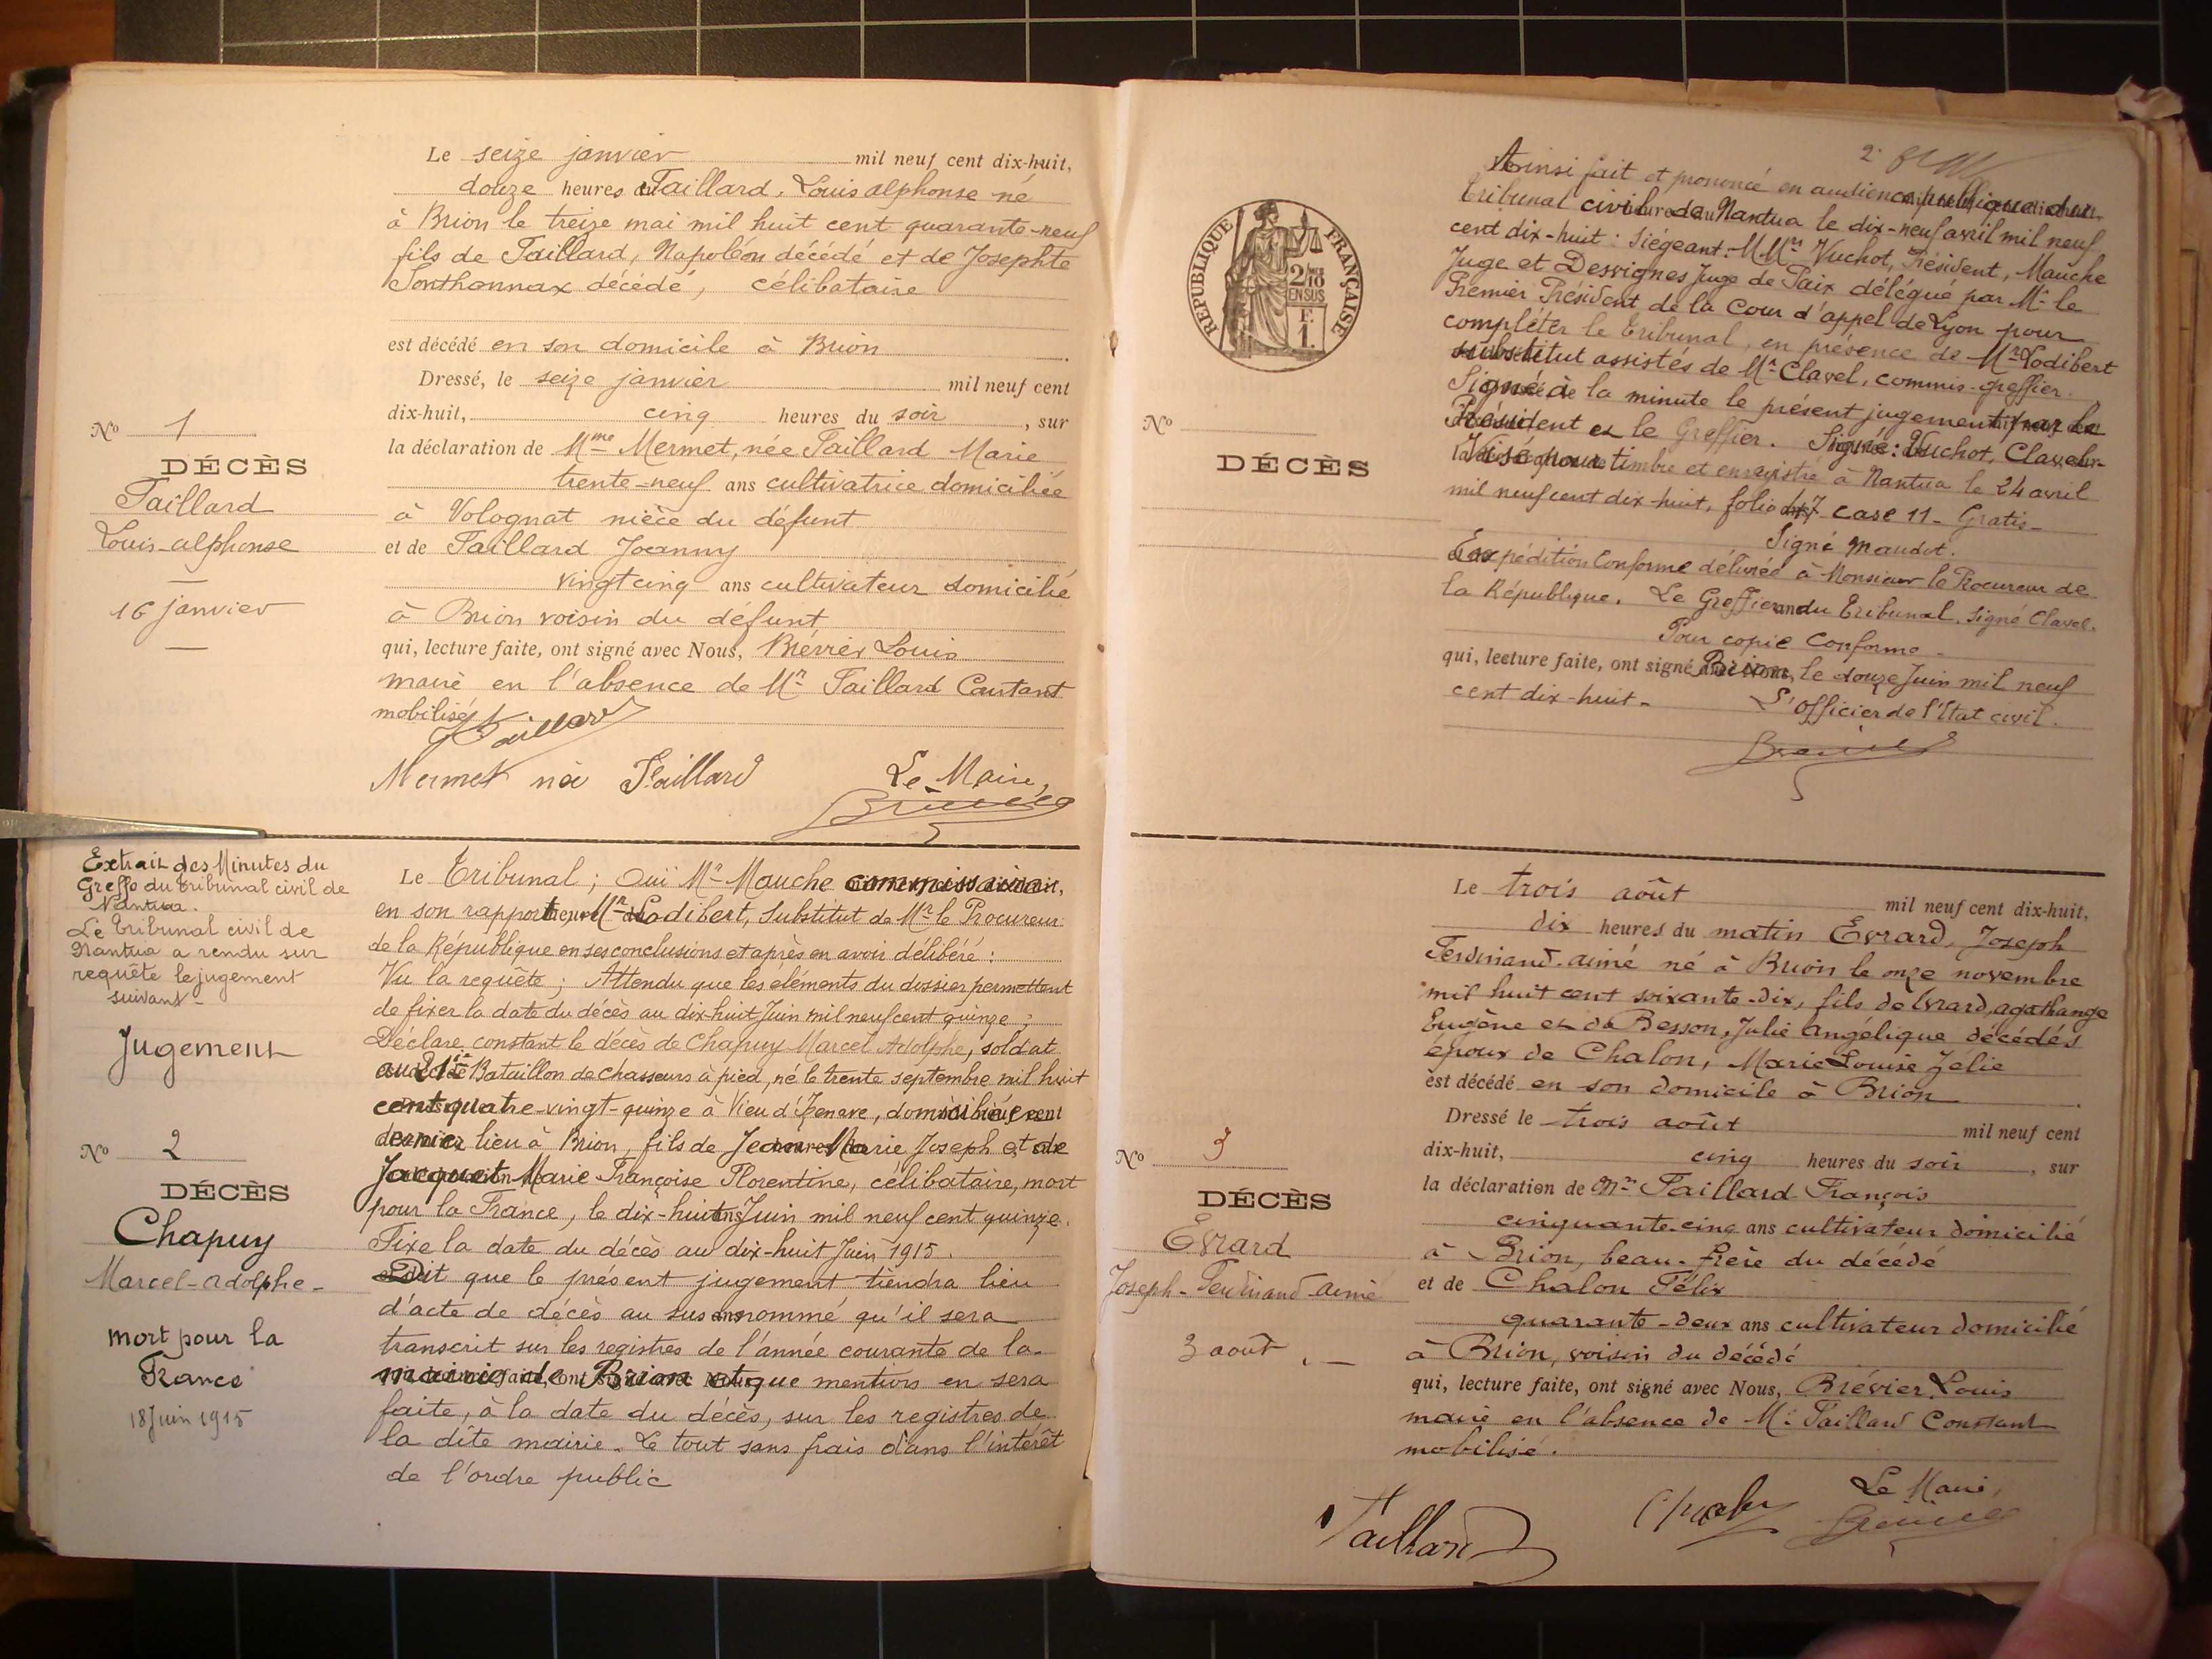 Le seize janvier mil neuf cent dix-huit,
douze heures Taillard, Louis alphonse né
à Brion le treize mai mil huit cent quarante-neuf
fils de Taillard, Napoléon décédé et de Josephte
Sonthonnax décédé, célibataire
est décédé en son domicile à Brion
Dressé, le seize janvier mil neuf cent
dix-huit, cinq heures du soir, sur
la déclaration de Mme Mermet, née Taillard Marie
trente-neuf ans cultivatrice domiciliée
à Volognat nièce du défunt
et de Taillard Joanny
vingt cinq ans cultivateur domicilié
à Brion voisin du défunt
qui, lecture faite, ont signé avec Nous, Brévier Louis
maire en l'absence de Mr Taillard Constant
mobilisé
Taillard
Mermet née Taillard Le Maire,
No 1
DÉCÈS
Taillard
Louis-alphonse
16 janvier
Extrait des Minutes du
Greffe du tribunal civil de
Nantua.
Le Tribunal civil de
Nantua a rendu sur
requête le jugement
suivant-
Jugement
No 2
DÉCÈS
Chapuy
Marcel-adolphe-
mort pour la
France
18 Juin 1915
Le Tribunal; Oui Mr Mauche commissaire
en son rapport, Mr Lodibert, Substitut de Mr le Procureur
de la République en ses conclusions et après en avoir délibéré:
Vu la requête; Attendu que les éléments du dossier permettent
de fixer la date du décès au dix-huit Juin mil neuf cent quinze;
Déclare constant le décès de Chapuy Marcel Adolphe, soldat
au 21e Bataillon de chasseurs à pied, né le trente septembre mil huit
cent quatre-vingt-quinze à Vieu d'Izenave, domicilié en
dernier lieu à Brion, fils de Jean Marie Joseph et de
Jacquet Marie Françoise Florentine, célibataire, mort
pour la France, le dix-huit Juin mil neuf cent quinze.
Fixe la date du décès au dix-huit Juin 1915.
Dit que le présent jugement tiendra lieu
d'acte de décès au susnommé qu'il sera
transcrit sur les registres de l'année courante de la
mairie de Brion et que mention en sera
faite, à la date du décès, sur les registres de
la dite mairie. Le tout sans frais dans l'intérêt
de l'ordre public
2
Ainsi fait et prononcé en audience publique du
tribunal civil de Nantua le dix-neuf avril mil neuf
cent dix-huit: siégeant: MMrs Vuchot, Président, Mauche
Juge et Desvignes Juge de Paix délégué par Mr le
Premier Président de la Cour d'appel de Lyon pour
compléter le tribunal, en présence de Mr Lodibert
substitut assistés de Mr Clavel, commis-greffier.
Signé à la minute le présent jugement par le
Président et le Greffier. Signé: Vuchot, Clavel.
Visé pour timbre et enregistré à Nantua le 24 avril
mil neuf cent dix-huit, folio 47 case 11- Gratis-
Signé Maudot.
Expédition Conforme délivrée à Monsieur le Procureur de
la République. Le Greffier du Tribunal. signé Clavel.
Pour copie Conforme-
qui, lecture faite, ont signé Brion, le douze Juin mil neuf
cent dix-huit- L'officier de l'Etat civil.
REPUBLIQUE FRANÇAISE
2/10
EN SUS
F.
1.
No
DÉCÈS
Le trois août mil neuf cent dix-huit,
dix heures du matin Evrard, Joseph
Ferdinand-aimé né à Brion le onze novembre
mil huit cent soixante-dix, fils de Evrard, agathange
Eugène et de Besson, Julie angélique décédés
époux de Chalon, Marie Louise Zélie
est décédé en son domicile à Brion
Dressé le trois août mil neuf cent
dix-huit, cinq heures du soir, sur
la déclaration de Mr Taillard François
cinquante-cinq ans cultivateur domicilié
à Brion, beau-frère du décédé
et de Chalon Félix
quarante-deux ans cultivateur domicilié
à Brion, voisin du décédé
qui, lecture faite, ont signé avec Nous, Brévier Louis
maire en l'absence de Mr Taillard Constant
mobilisé.
Le Maire,
Taillard
No 3
DÉCÈS
Evrard
Joseph-Ferdinand-aimé
3 août.-